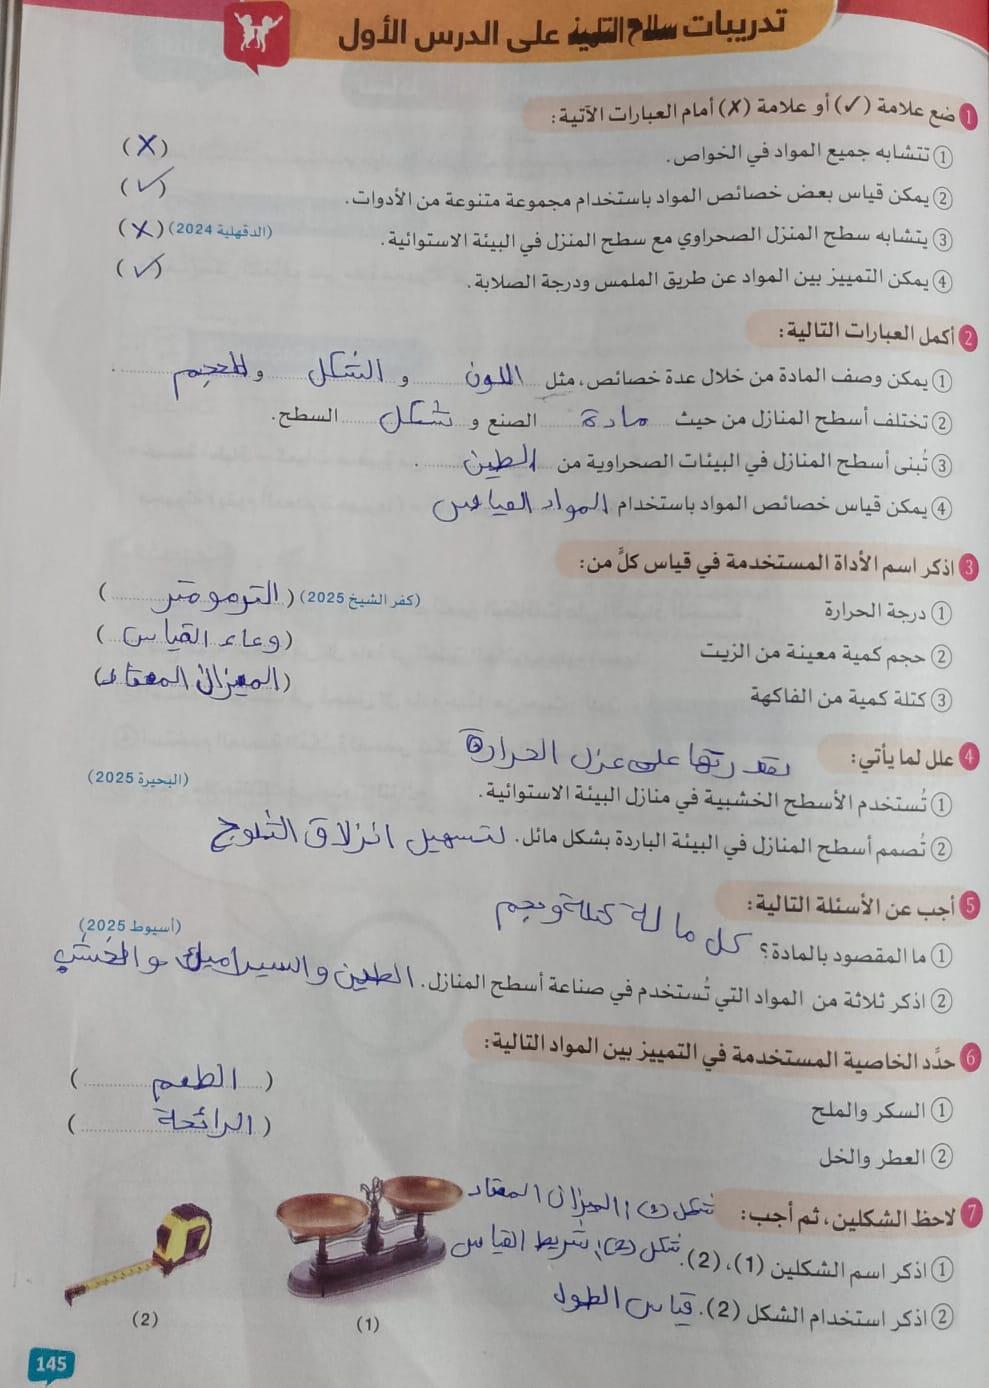 تدريبات سلاح التلميذ على الدرس الأول
1 ضع علامة (✓) أو علامة (✗) أمام العبارات الآتية:
① تتشابه جميع المواد في الخواص. (✗)
② يمكن قياس بعض خصائص المواد باستخدام مجموعة متنوعة من الأدوات. (✓)
③ يتشابه سطح المنزل الصحراوي مع سطح المنزل في البيئة الاستوائية. (الدقهلية 2024) (✗)
④ يمكن التمييز بين المواد عن طريق الملمس ودرجة الصلابة. (✓)
2 أكمل العبارات التالية:
① يمكن وصف المادة من خلال عدة خصائص، مثل اللون و الشكل و الحجم.
② تختلف أسطح المنازل من حيث مادة الصنع و شكل السطح.
③ تُبنى أسطح المنازل في البيئات الصحراوية من الطين.
④ يمكن قياس خصائص المواد باستخدام المواد القياس
3 اذكر اسم الأداة المستخدمة في قياس كلًّ من:
① درجة الحرارة (كفر الشيخ 2025) (الترمومتر)
② حجم كمية معينة من الزيت (وعاء القياس)
③ كتلة كمية من الفاكهة (الميزان المعتاد)
4 علل لما يأتي: لقدرتها على عزل الحرارة
① تُستخدم الأسطح الخشبية في منازل البيئة الاستوائية. (البحيرة 2025)
② تُصمم أسطح المنازل في البيئة الباردة بشكل مائل. لتسهيل انزلاق الثلوج
5 أجب عن الأسئلة التالية:
① ما المقصود بالمادة؟ كل ما له كتلة وحجم (أسيوط 2025)
② اذكر ثلاثة من المواد التي تُستخدم في صناعة أسطح المنازل. الطين والسيراميك والخشب
6 حدَّد الخاصية المستخدمة في التمييز بين المواد التالية:
① السكر والملح (الطعم)
② العطر والخل (الرائحة)
7 لاحظ الشكلين، ثم أجب: شكل (1) الميزان المعتاد
① اذكر اسم الشكلين (1)، (2). شكل (2) شريط القياس
② اذكر استخدام الشكل (2). قياس الطول
(1)
(2)
145